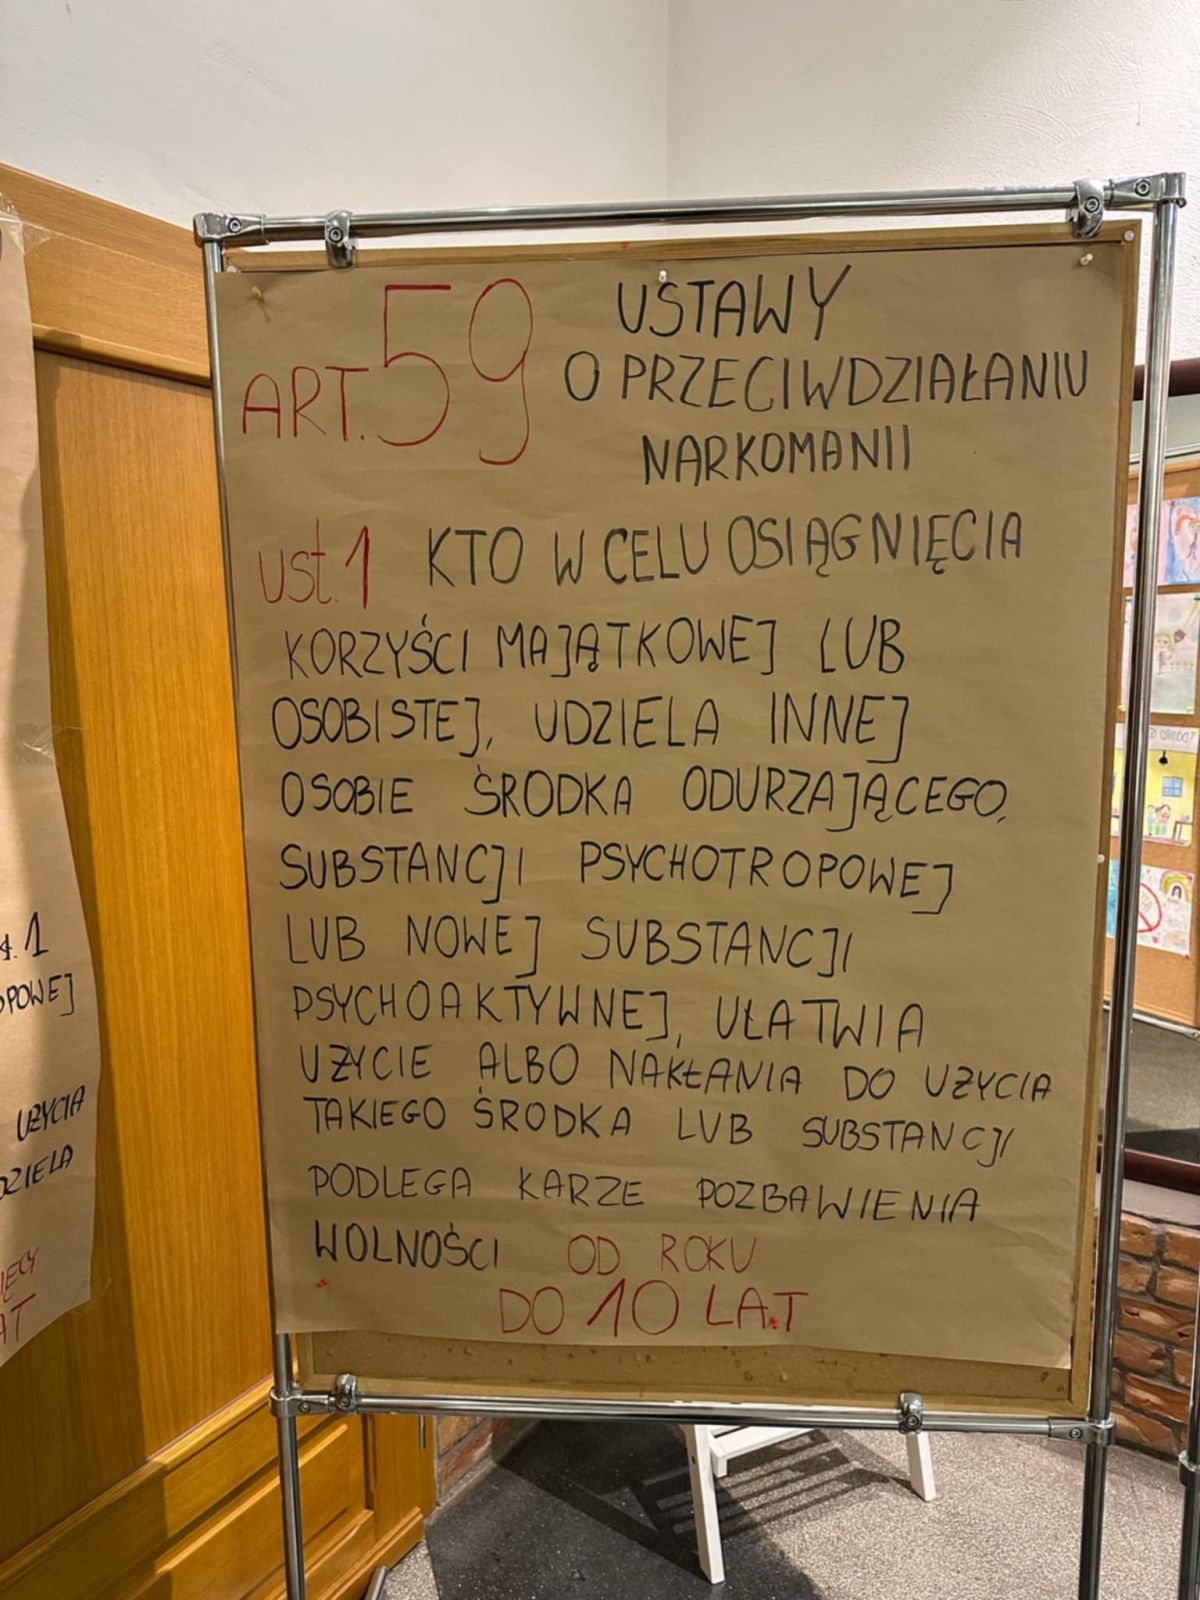 ART. 59 USTAWY
O PRZECIWDZIAŁANIU
NARKOMANII
ust. 1 KTO W CELU OSIĄGNIĘCIA
KORZYŚCI MAJĄTKOWEJ LUB
OSOBISTEJ, UDZIELA INNEJ
OSOBIE ŚRODKA ODURZAJĄCEGO,
SUBSTANCJI PSYCHOTROPOWEJ
LUB NOWEJ SUBSTANCJI
PSYCHOAKTYWNEJ, UŁATWIA
UŻYCIE ALBO NAKŁANIA DO UŻYCIA
TAKIEGO ŚRODKA LUB SUBSTANCJI
PODLEGA KARZE POZBAWIENIA
WOLNOŚCI OD ROKU
DO 10 LAT
1
UŻYCIA